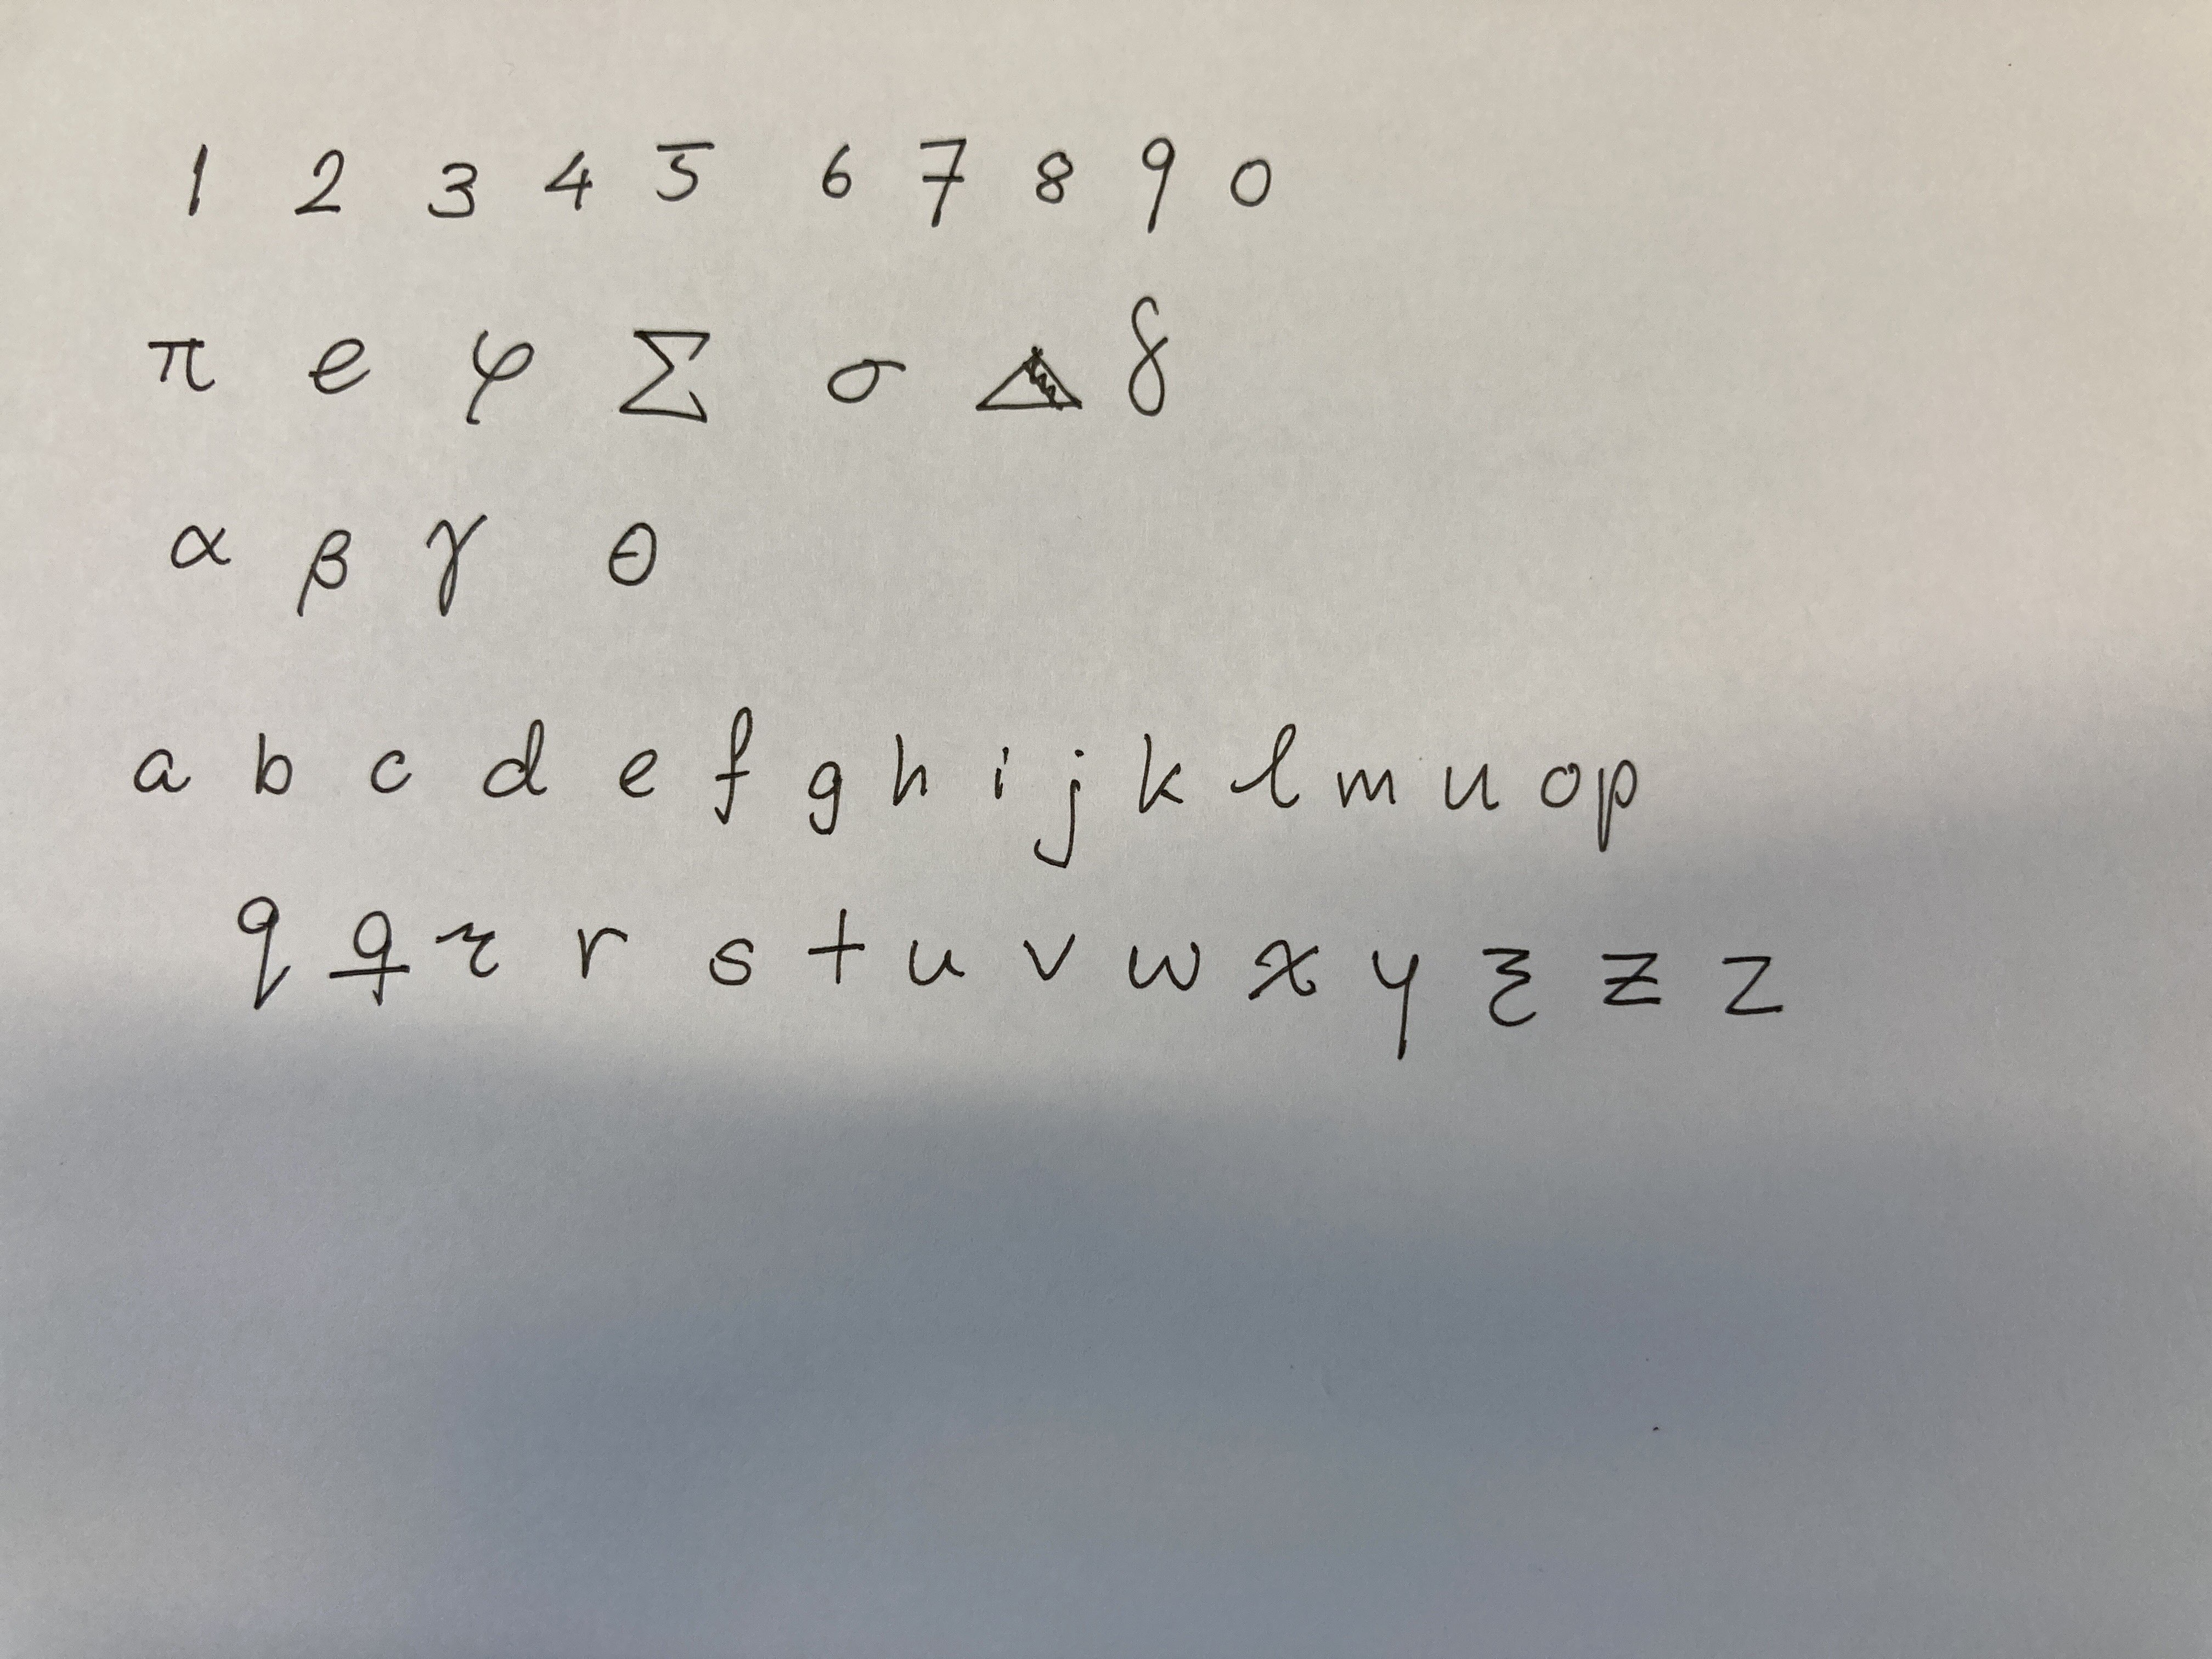 1 2 3 4 5 6 7 8 9 0
π e φ Σ σ Δ δ
α β γ θ
a b c d e f g h i j k l m u o p
q q r r s t u v w x y z z z